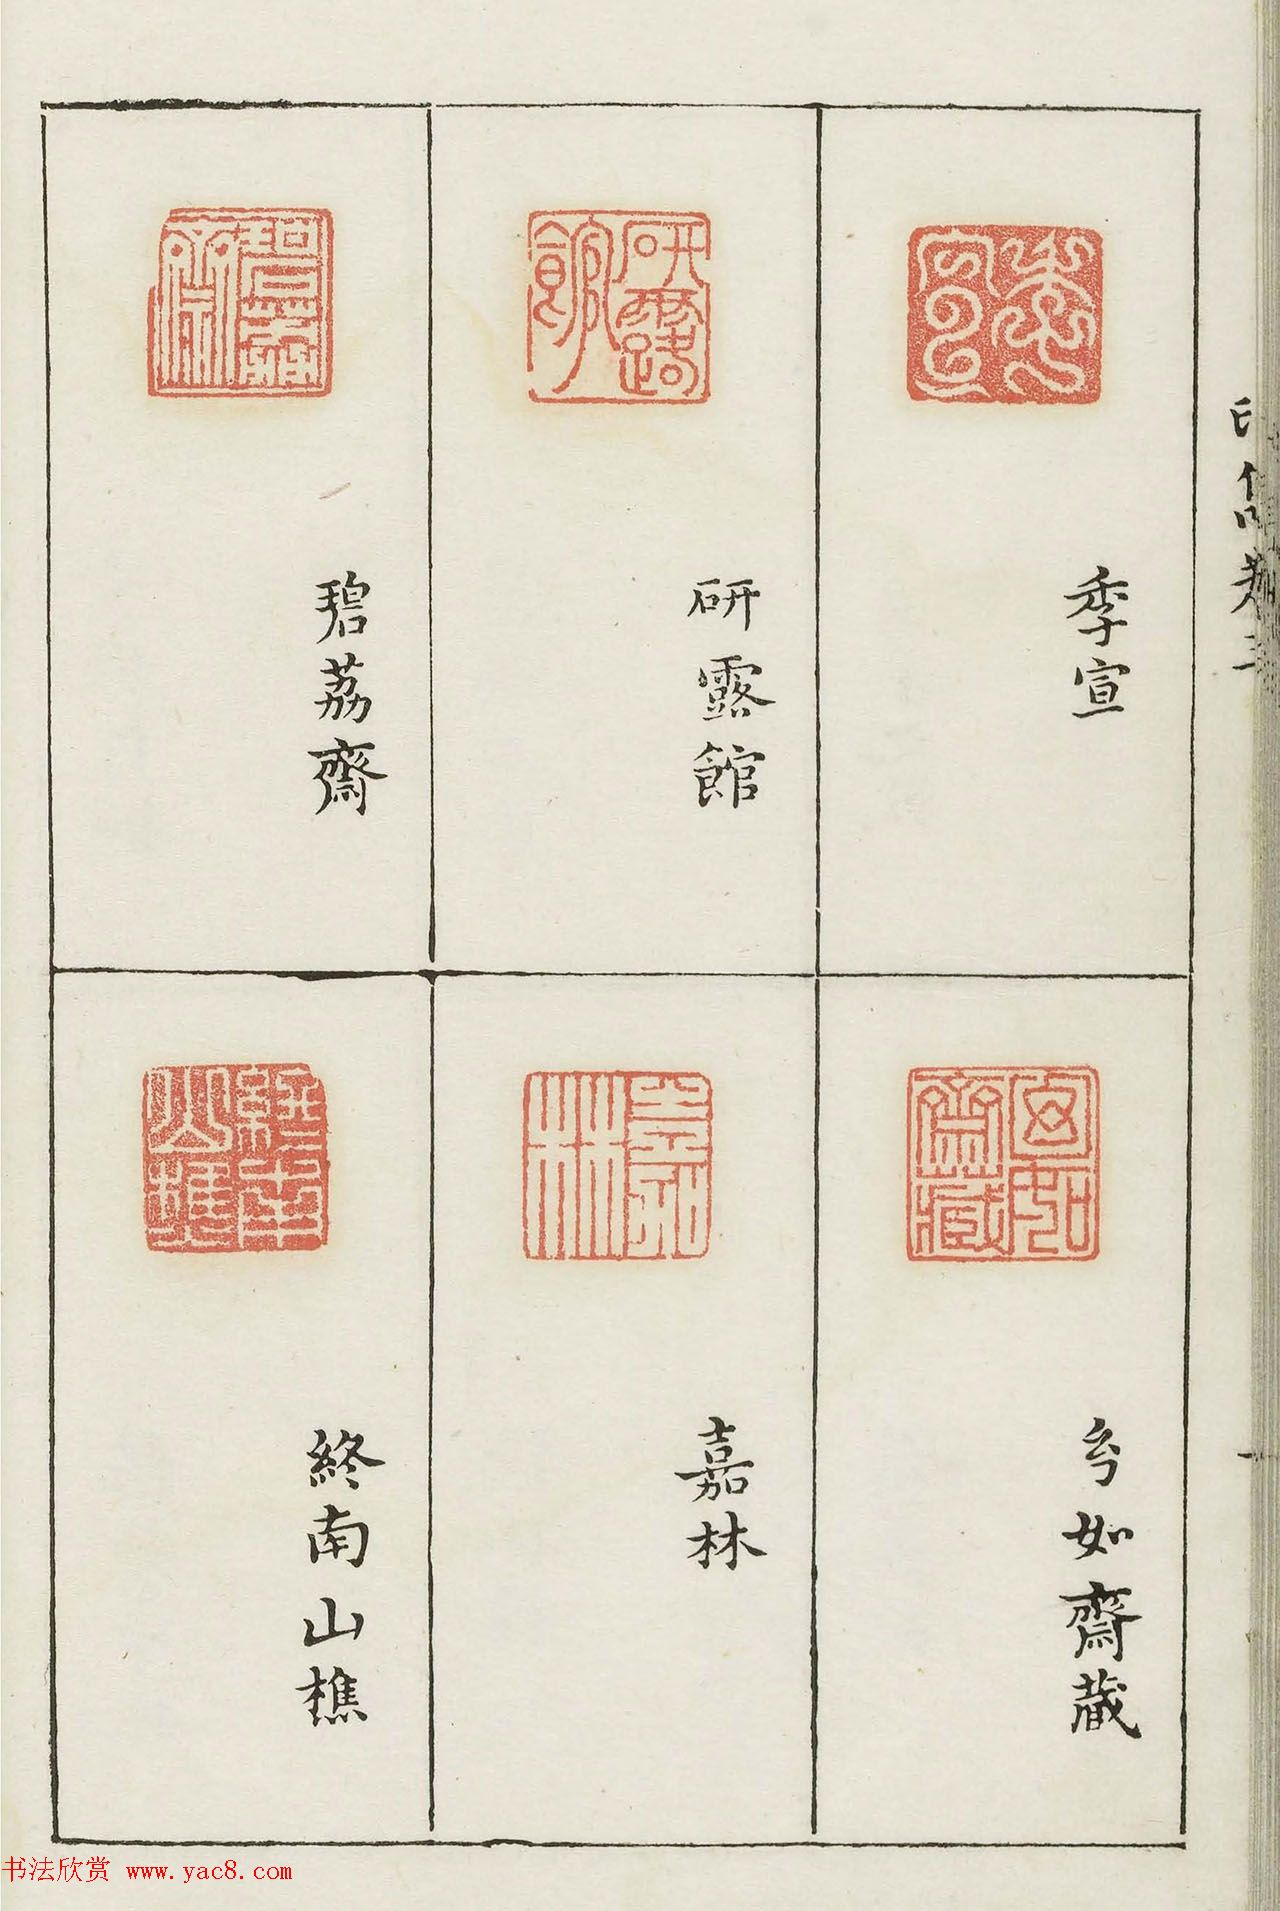 季宣
研露館
碧荔齋
兮如齋藏
嘉林
終南山樵
书法欣赏 www.yac8.com